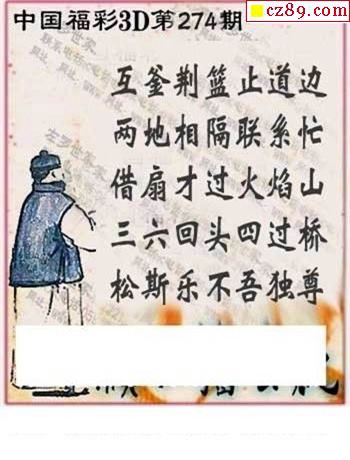 cz89.com
中国福彩3D第274期
互釜荆篮止道边
两地相隔联系忙
借扇才过火焰山
三六回头四过桥
松斯乐不吾独尊